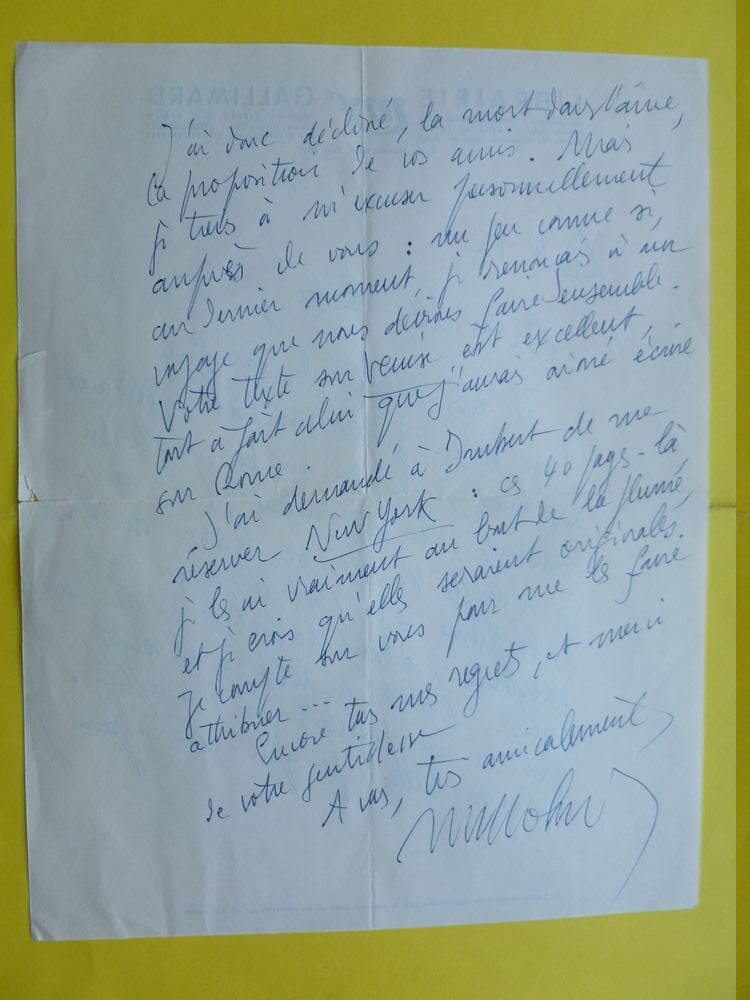 LIBRAIRIE nrf GALLIMARD
J'ai donc décliné, la mort dans l'âme,
la proposition de vos amis. Mais
je tiens à m'excuser personnellement
auprès de vous : un peu comme si,
au dernier moment, je renonçais à un
voyage que nous devions faire ensemble.
Votre texte sur Venise est excellent,
tout à fait celui que j'aurais aimé écrire
sur Rome.
J'ai demandé à de me
réserver New York : ces 40 pages-là,
je les ai vraiment au bout de la plume,
et je crois qu'elles seraient originales.
Je compte sur vous pour me les faire
attribuer...
Encore tous mes regrets, et merci
de votre gentillesse
A vous, très amicalement